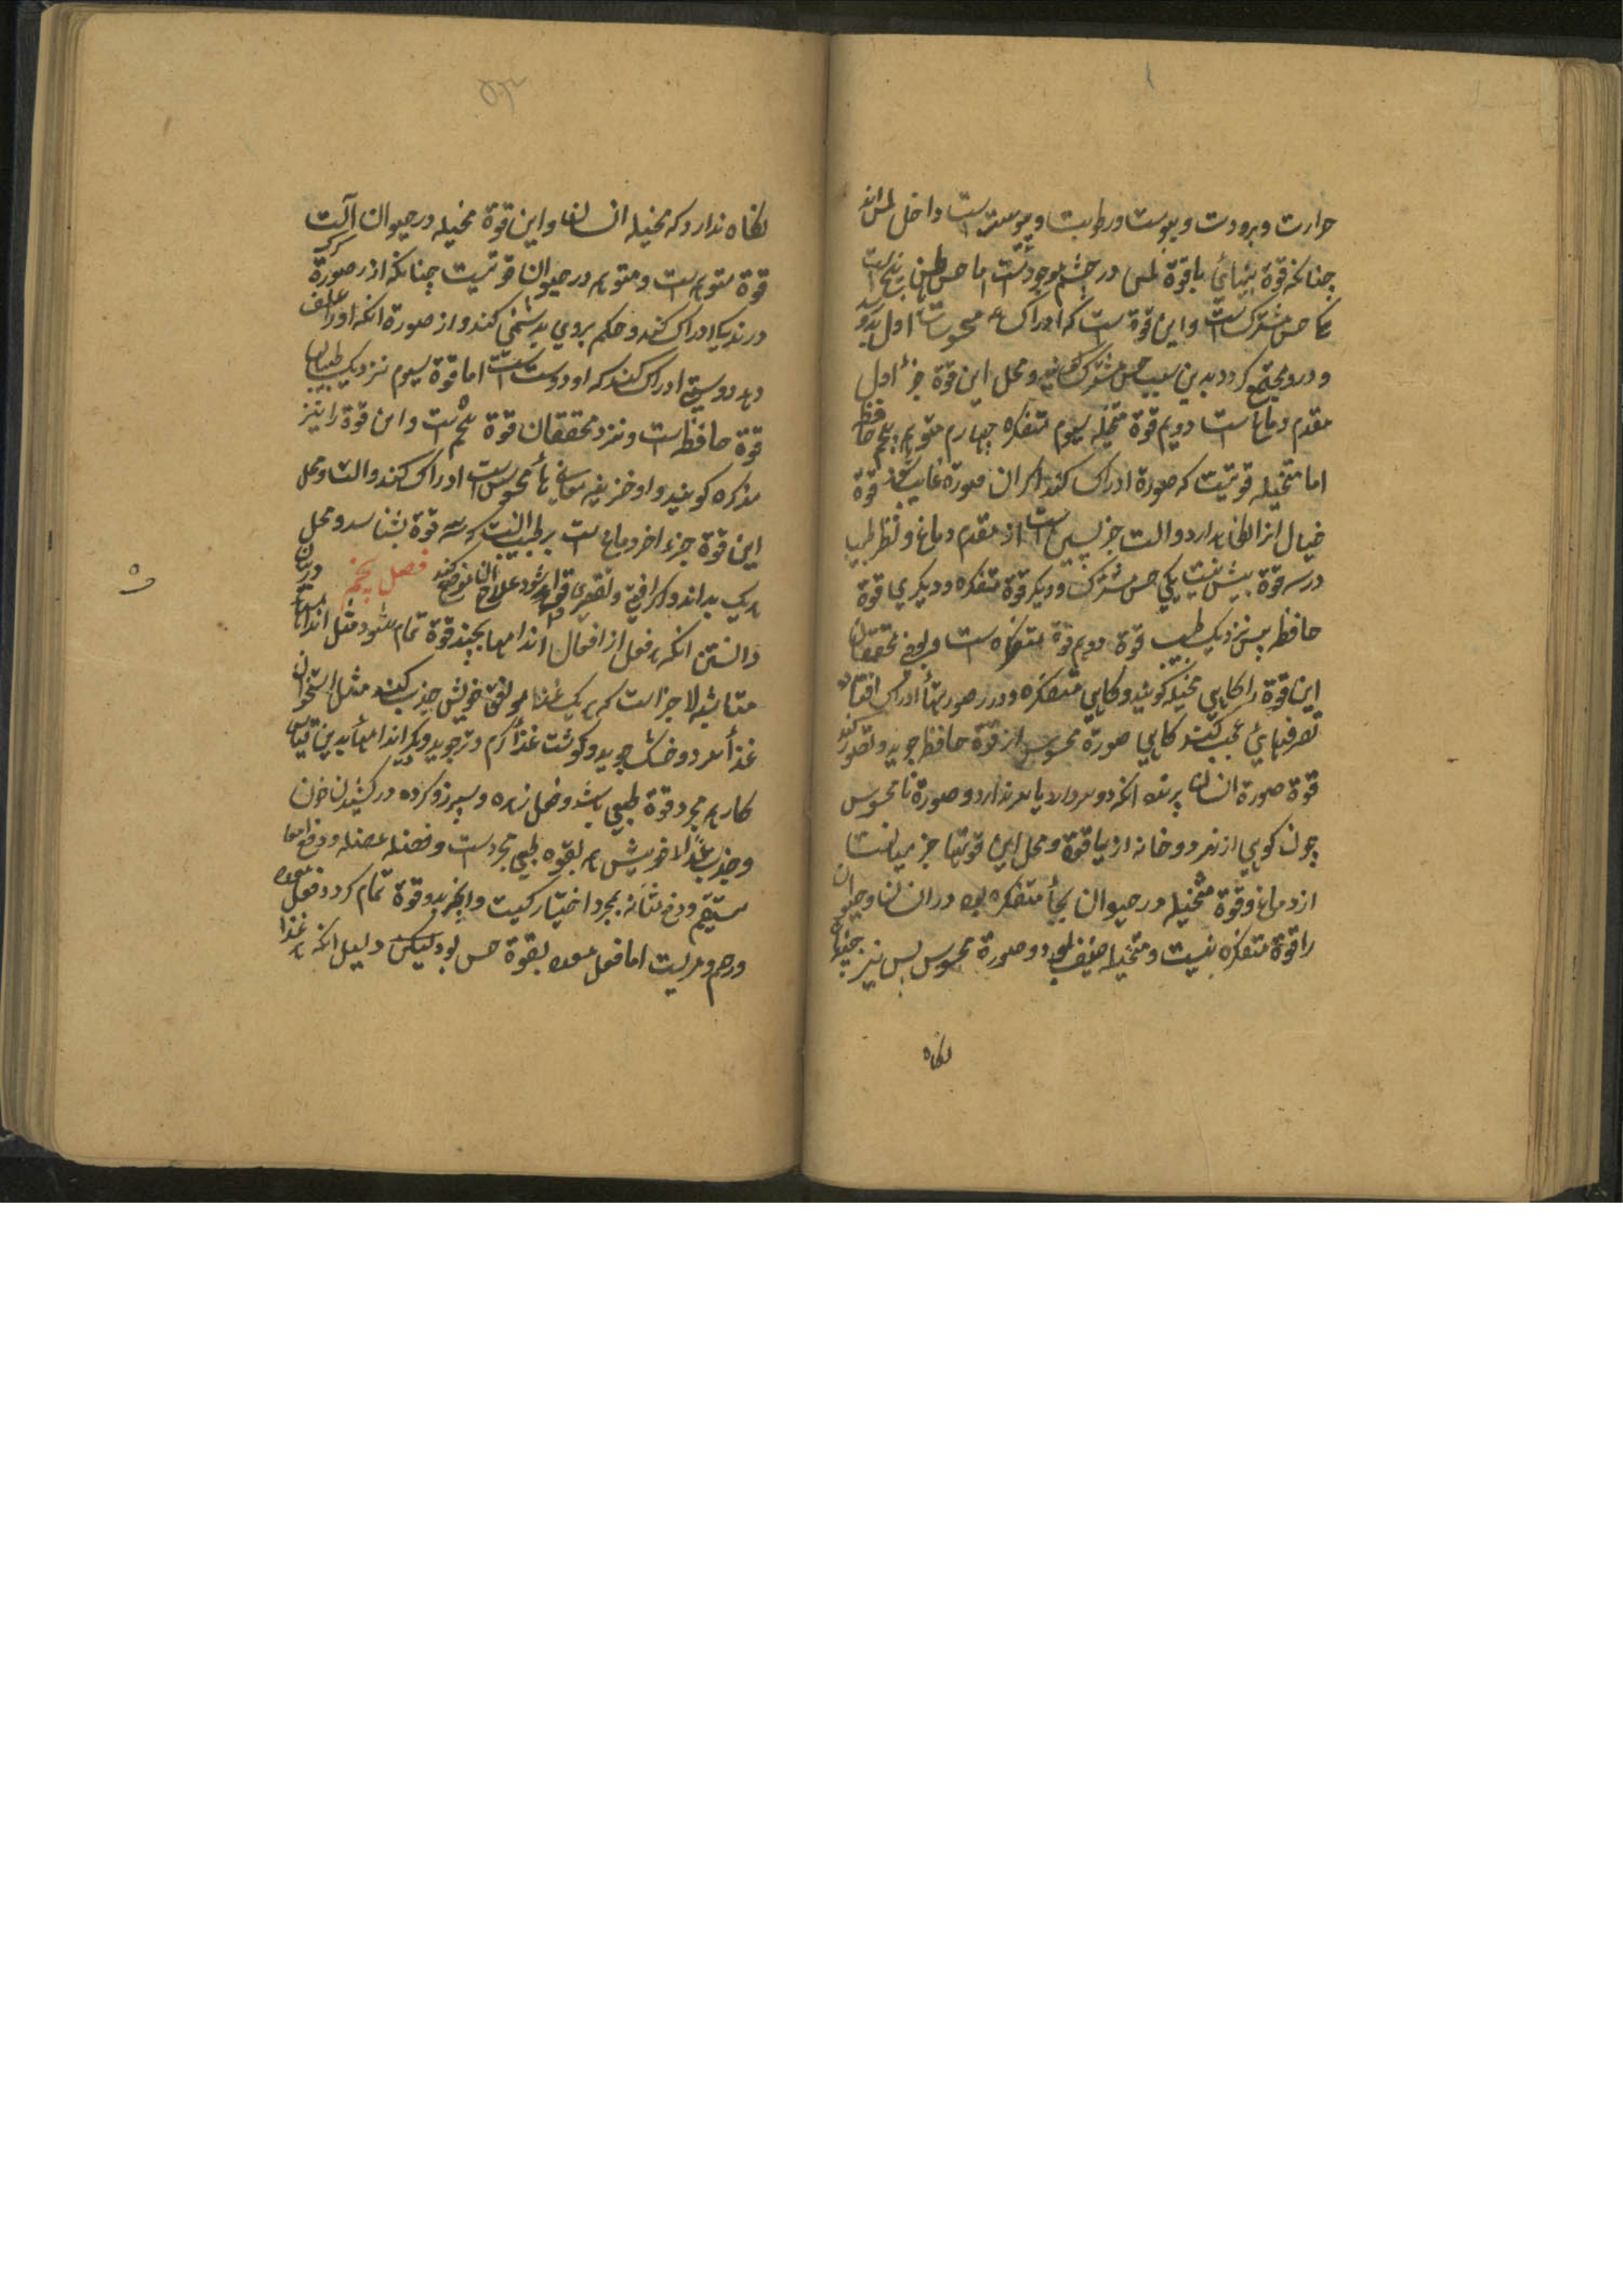 حرارت و برودت و یبوست و رطوبت و پوست داخل لمس اند
چنانکه قوة بینائی باقوة لمس در چشم موجودست اما حس باطن پنج است
یکی حس مشترک است و این قوة است که ادراک همه محسوسات اول بدو رسد
و درو مجتمع کردد بدین سبب حس مشترک و محل این قوة جزء اول
مقدم دماغ است دویم قوة متخیله سیوم متفکره چهارم متوهم پنجم حافظه
اما متخیله قوتیست که صورة ادراک کند اکر ان صورة غایب شد قوة
خیال انرا نکاه دارد و الت جز پسین است از مقدم دماغ و نظر طبیب
در سه قوة بیش نیست یکی حس مشترک و دیکر قوة متفکره و دیکری قوة
حافظه پس نزدیک طبیب قوة دویم قوة متفکره است و بعضی محققان
این قوة را کاهی مخیله کویند و کاهی متفکره و در صورتها ادراک افتاده
تصرفهائ عجب کند کاهی صورة محسوس از قوة حافظ جوید و تصور کند
قوة صورة انسان پرنده انکه دو سر دارد یا سر ندارد و صورة نامحسوس
چون کوهی از زمرد و خانه از یاقوة و محل این قوتها جز میانست
از دماغ و قوة متخیله در حیوان بجاء متفکره بود در انسان و حیوان
را قوة متفکره نیست و متخیله ضعیف بود و صورة محسوس بس نیز چنان
نکاه
نکاه ندارد که مخیله انسان و این قوة مخیله در حیوان آلت
قوة متوهم است و متوهم در حیوان قوتیست چنانکه از صورة کرک
درندکی ادراک کند و حکم بروی بدشمنی کند و از صورة انکه اورا علف
دهد دوستی ادراک کند که او دوست است اما قوة سیوم نزدیک طبیبان
قوة حافظه است و نزد محققان قوة پنجم است و این قوة را نیز
مذکره کویند و او خزینه معانی نامحسوس است ادراک کند و الت و محل
این قوة جزء اخر دماغ است بر طبیب انست که سه قوة بشناسد و محل
هر یک بداند و اکر افتی و تقصیری واقع شود علاج ان موضع کند فصل پنجم در بیان
دانستن انکه هر فعل از افعال اندامها بچند قوة تمام شود مثل اندامها
متشابه الاجزا است که هر یک غذا موافق خویش جذب کنند مثل استخوان
غذا سرد و خشک جوید و کوشت غذا کرم و تر جوید و دیکر اندامها بدین قیاس
کار هم مجرد قوة طبیعی باشد و فعل زهره و سپرز و کرده در کشیدن خون
و جذب غذا خویش هم بقوه طبیعی مجردست و فعل عضله و دفع امعا
مستقیم و دفع مثانه بمجرد اختیار کیست و انچه بدو قوة تمام کردد فعل معده
و رحم و مریست اما فعل معده بقوة حس بود لیکن دلیل انکه هر غذا